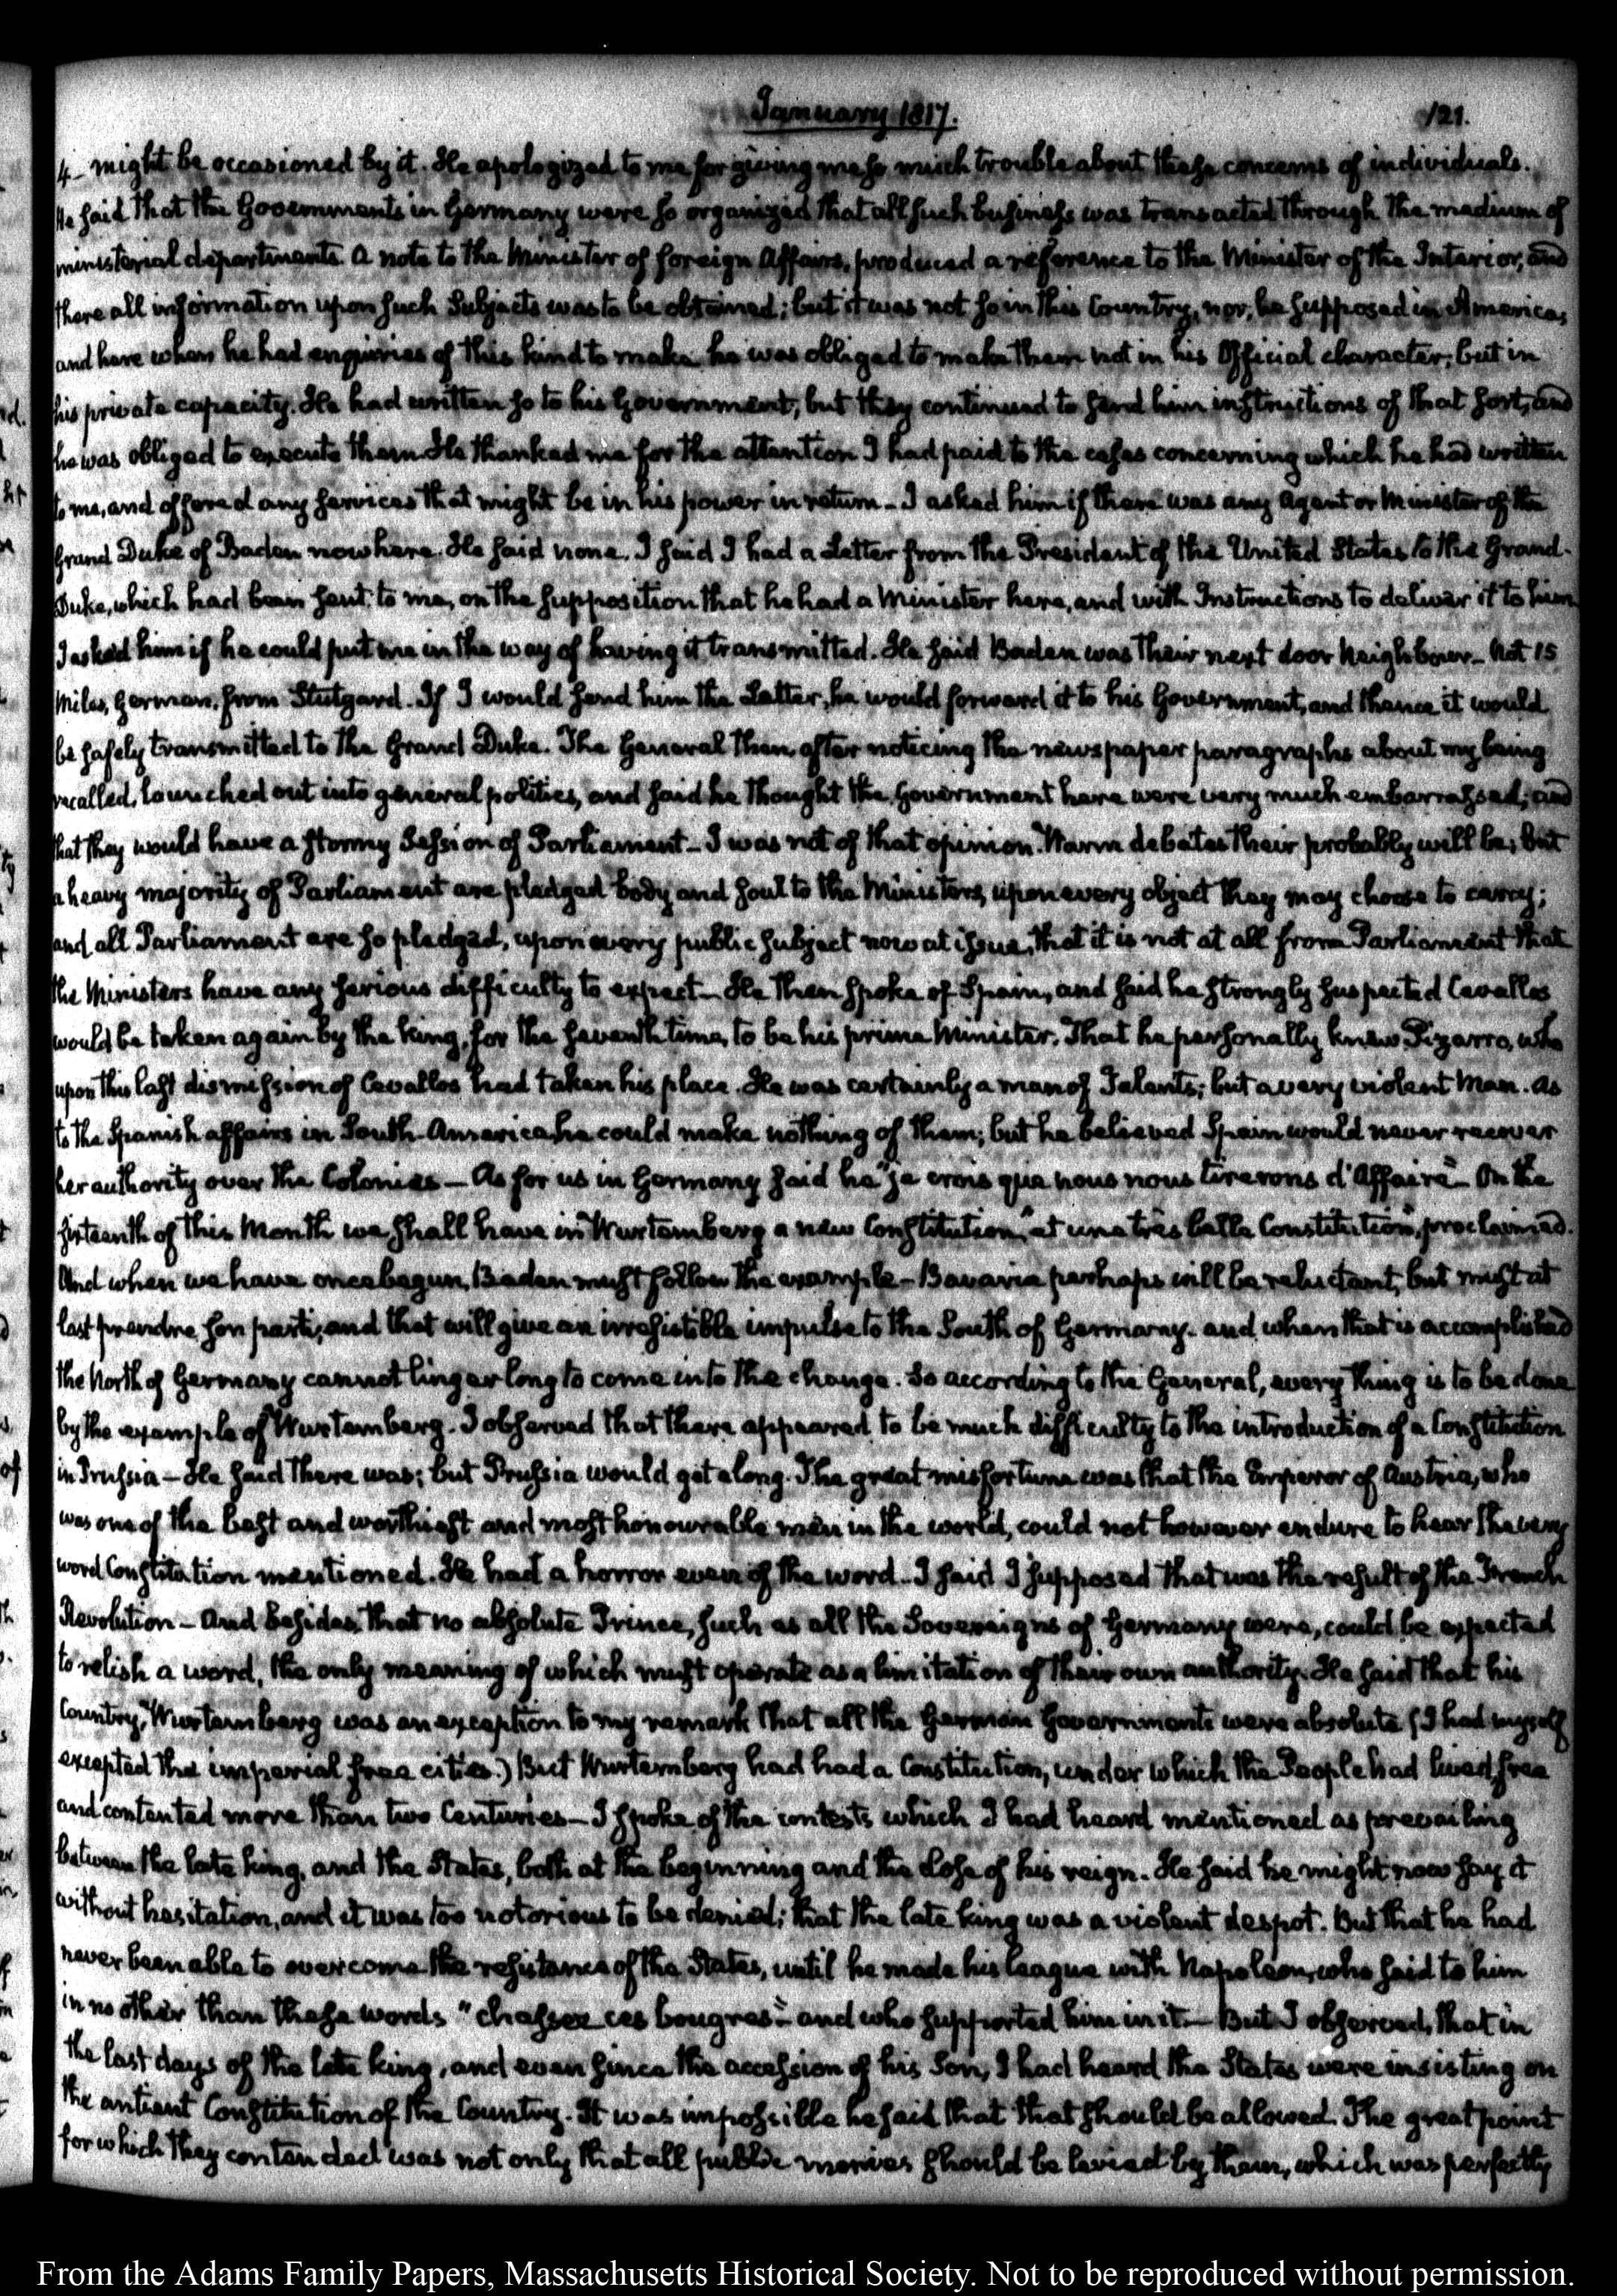 January 1817.
121.
4- might be occasioned by it. He apologized to me for giving me so much trouble about these concerns of individuals.
He said that the Governments in Germany were so organized that all such business was transacted through the medium of
ministerial departments. A note to the Minister of foreign Affairs, produced a reference to the Minister of the Interior, and
there all information upon such Subjects was to be obtained; but it was not so in this Country, nor, he supposed in America,
and here when he had enquiries of this kind to make he was obliged to make them not in his Official character, but in
his private capacity. He had written so to his Government, but they continued to send him instructions of that sort, and
he was obliged to execute them. He thanked me for the attention I had paid to the cases concerning which he had written
to me, and offered any services that might be in his power in return - I asked him if there was any Agent or Minister of the
Grand Duke of Baden now here. He said none. I said I had a Letter from the President of the United States to the Grand-
Duke, which had been sent to me, on the supposition that he had a Minister here, and with Instructions to deliver it to him
I asked him if he could put me in the way of having it transmitted. He said Baden was their next door Neighbour - Not 15
Miles, German, from Stutgard. If I would send him the Letter, he would forward it to his Government, and thence it would
be safely transmitted to the Grand Duke. The General then, after noticing the newspaper paragraphs about my being
recalled, launched out into general politics, and said he thought the Government here were very much embarrassed; and
that they would have a stormy Session of Parliament - I was not of that opinion. Warm debates their probably will be; but
a heavy majority of Parliament are pledged body and soul to the Ministers, upon every object they may choose to carry;
and all Parliament are so pledged, upon every public subject now at issue, that it is not at all from Parliament that
the Ministers have any serious difficulty to expect - He then spoke of Spain, and said he strongly suspected Cevallos
would be taken again by the king, for the seventh time, to be his prime Minister. That he personally knew Pizarro, who
upon this last dismission of Cevallos had taken his place. He was certainly a man of Talents; but a very violent Man. As
to the Spanish affairs in South-America, he could make nothing of them; but he believed Spain would never recover
her authority over the Colonies - As for us in Germany said he "je crois que nous nous tirerons d'Affaire" - On the
sixteenth of this Month we shall have in Wurtemberg a new Constitution, "et une très belle Constitution", proclaimed.
And when we have once begun, Baden must follow the example - Bavaria perhaps will be reluctant, but must at
last prendre son parti; and that will give an irresistible impulse to the South of Germany - and when that is accomplished
the North of Germany cannot linger long to come into the change. So according to the General, every thing is to be done
by the example of Wurtemberg. I observed that there appeared to be much difficulty to the introduction of a Constitution
in Prussia - He said there was; but Prussia would get along. The great misfortune was that the Emperor of Austria, who
was one of the best and worthiest and most honourable men in the world, could not however endure to hear the very
word Constitution mentioned. He had a horror even of the word. I said I supposed that was the result of the French
Revolution - And besides, that no absolute Prince, such as all the Sovereigns of Germany were, could be expected
to relish a word, the only meaning of which must operate as a limitation of their own authority. He said that his
Country, Wurtemberg was an exception to my remark that all the German Governments were absolute (I had myself
excepted the imperial free cities.) But Wurtemberg had had a Constitution, under which the People had lived, free
and contented more than two Centuries - I spoke of the contests which I had heard mentioned as prevailing
between the late king, and the States, both at the beginning and the close of his reign. He said he might now say it
without hesitation, and it was too notorious to be denied; that the late king was a violent despot. But that he had
never been able to overcome the resistance of the States, until he made his league with Napoleon, who said to him
in no other than these words "chassez ces bougres" - and who supported him in it - But I observed, that in
the last days of the late king, and even since the accession of his Son, I had heard the States were insisting on
the antient Constitution of the Country. It was impossible he said that that should be allowed. The great point
for which they contended was not only that all public monies should be levied by them, which was perfectly
From the Adams Family Papers, Massachusetts Historical Society. Not to be reproduced without permission.